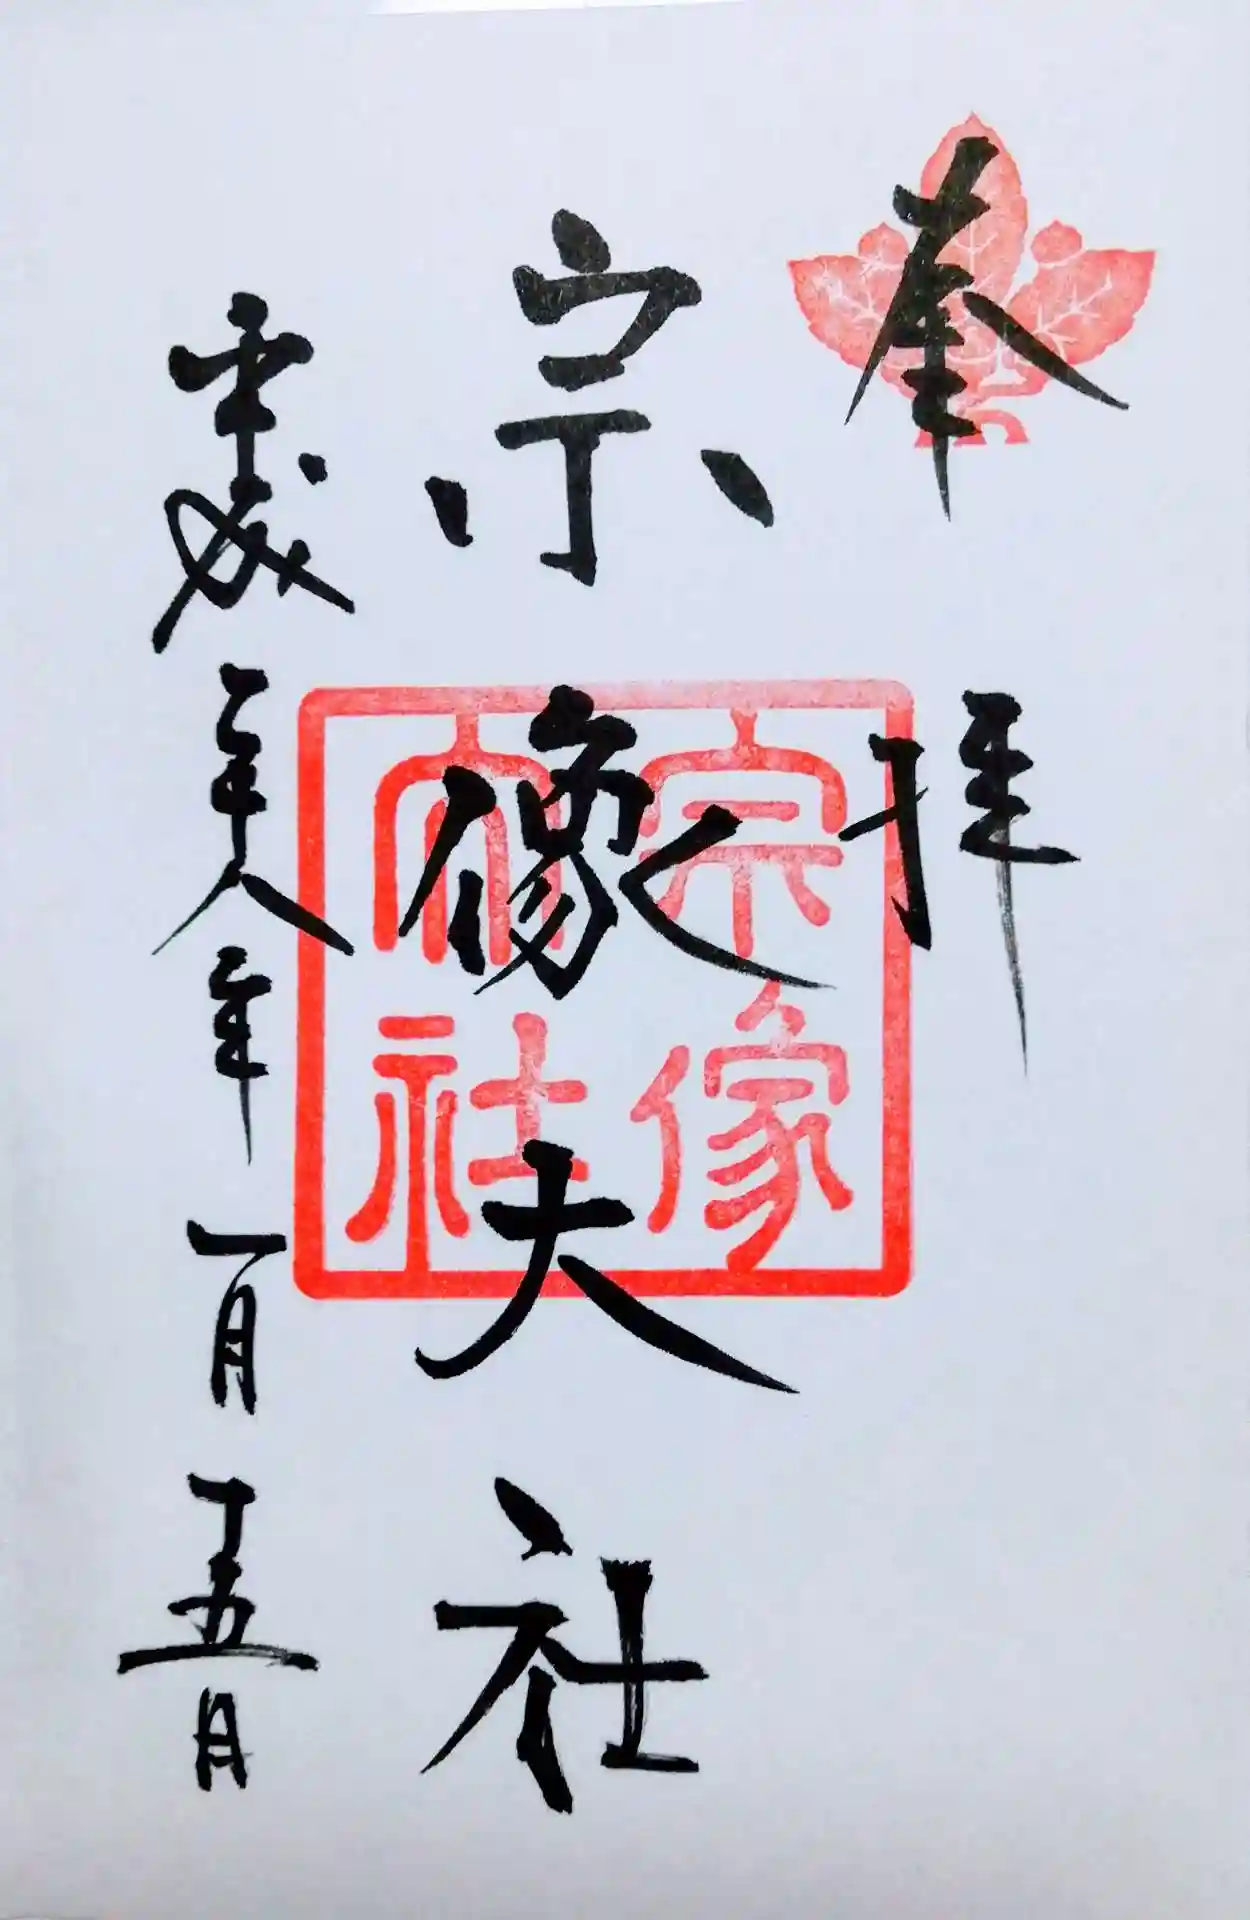 奉拝
宗像大社
平成二十八年一月十五日
宗像
大社